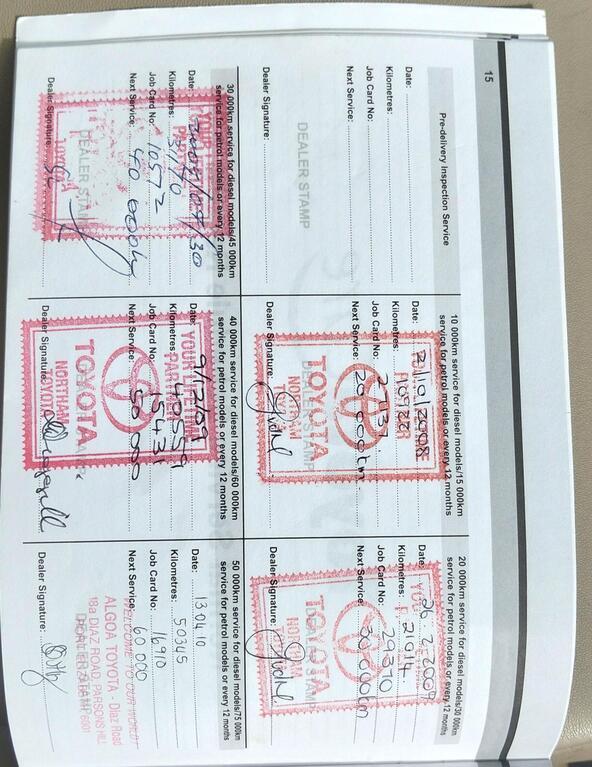 15
Pre-delivery Inspection Service
Date:
Kilometres:
Job Card No:
Next Service:
DEALER STAMP
Dealer Signature:
10 000km service for diesel models/15 000km
service for petrol models or every 12 months
Date: 2/10/2008
Kilometres: 10922
Job Card No:
Next Service: 20 000km
TOYOTA
NORTHAM
Dealer Signature:
20 000km service for diesel models/30 000km
service for petrol models or every 12 months
Date: 26.2.2009
Kilometres: 21014
Job Card No: 29370
Next Service: 30 000km
TOYOTA
NORTHAM
Dealer Signature:
30 000km service for diesel models/45 000km
service for petrol models or every 12 months
Date: 2009/09/30
Kilometres: 31170
Job Card No: 10572
Next Service: 40 000km
DEALER STAMP
TOYOTA
Dealer Signature:
40 000km service for diesel models/60 000km
service for petrol models or every 12 months
YOUR LIFETIME
PARTNER
Date: 9/12/09
Kilometres: 40559
Job Card No: 15431
Next Service: 50 000
TOYOTA
NORTHAM
Dealer Signature:
50 000km service for diesel models/75 000km
service for petrol models or every 12 months
Date: 13.04.10
Kilometres: 50345
Job Card No: 16910
Next Service: 60 000
WELCOME TO OUR WORLD
ALGOA TOYOTA - Diaz Road
DIAZ ROAD, PARSONS HILL
DEALER STAMP 6001
Dealer Signature: